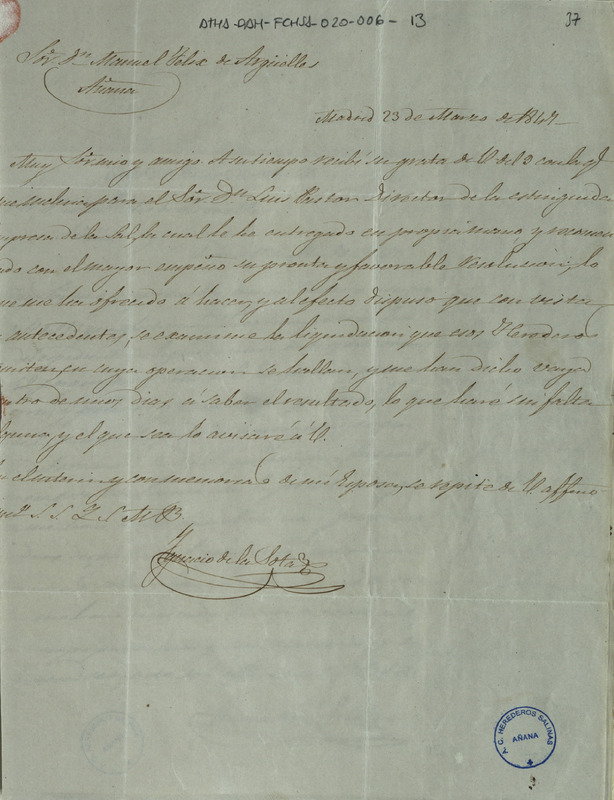 ATHA-DAH-FCHSS-020-006-13
37
Sor. Dn. Manuel Felix de Argüelles
Añana
Madrid 23 de Marzo de 1847
Muy Sor mio y amigo. A su tiempo recibi su grata de V. del 9 con la q.
para el Sor. Dn. Luis Pastor Director de la estinguida
mpresa de la Sal, la cual le he entregado en propria mano y recomen
do con el mayor empeño su pronta y favorable resolusion, lo
ue me ha ofrecido á hacer, y al efecto dispuso que con vista
antecedentes se examine la liquidacion que esos Herederos
miten, en cuya operacion se hallan, y me han dicho vaya
ntro de unos dias á saber el resultado, lo que haré sin falta
lguna, y el que sea lo avisaré á V.
el interin y con memorias de mi Esposa, se repite de V. affmo
S. S. Q. S. M. B.
Ignacio de la Sota
C. HEREDEROS SALINAS
AÑANA